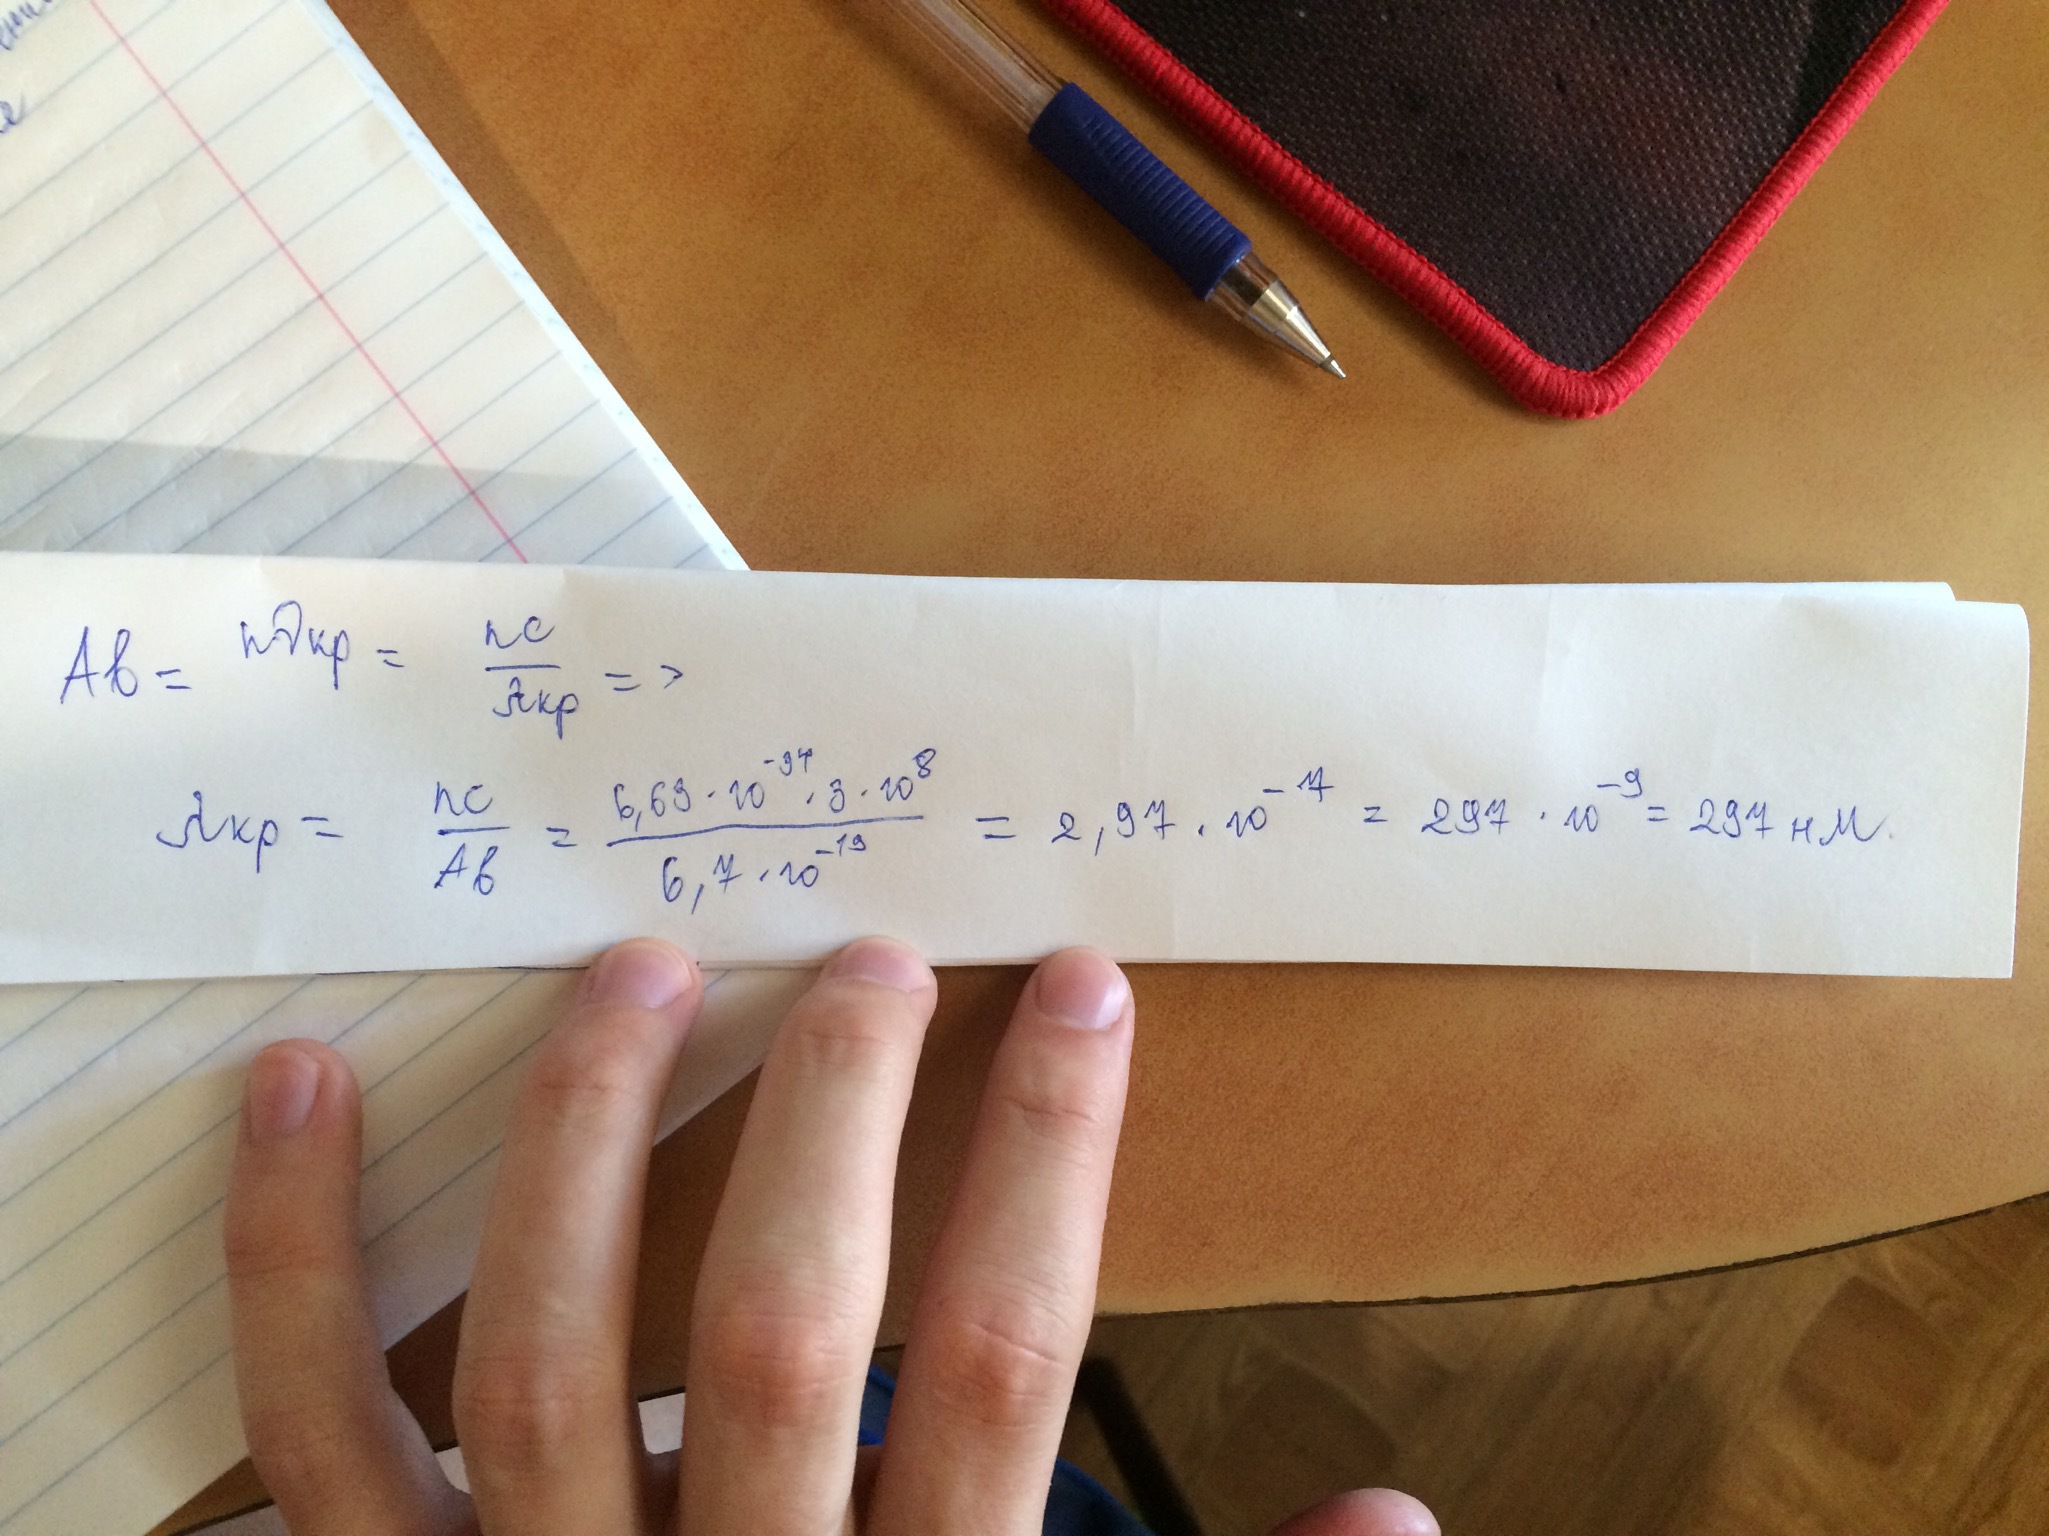 Aв = hνкр = hc/λкр =>
λкр = hc/Aв = 6,63·10⁻³⁴·3·10⁸/6,7·10⁻¹⁹ = 2,97·10⁻¹⁷ = 297·10⁻⁹ = 297 нм.